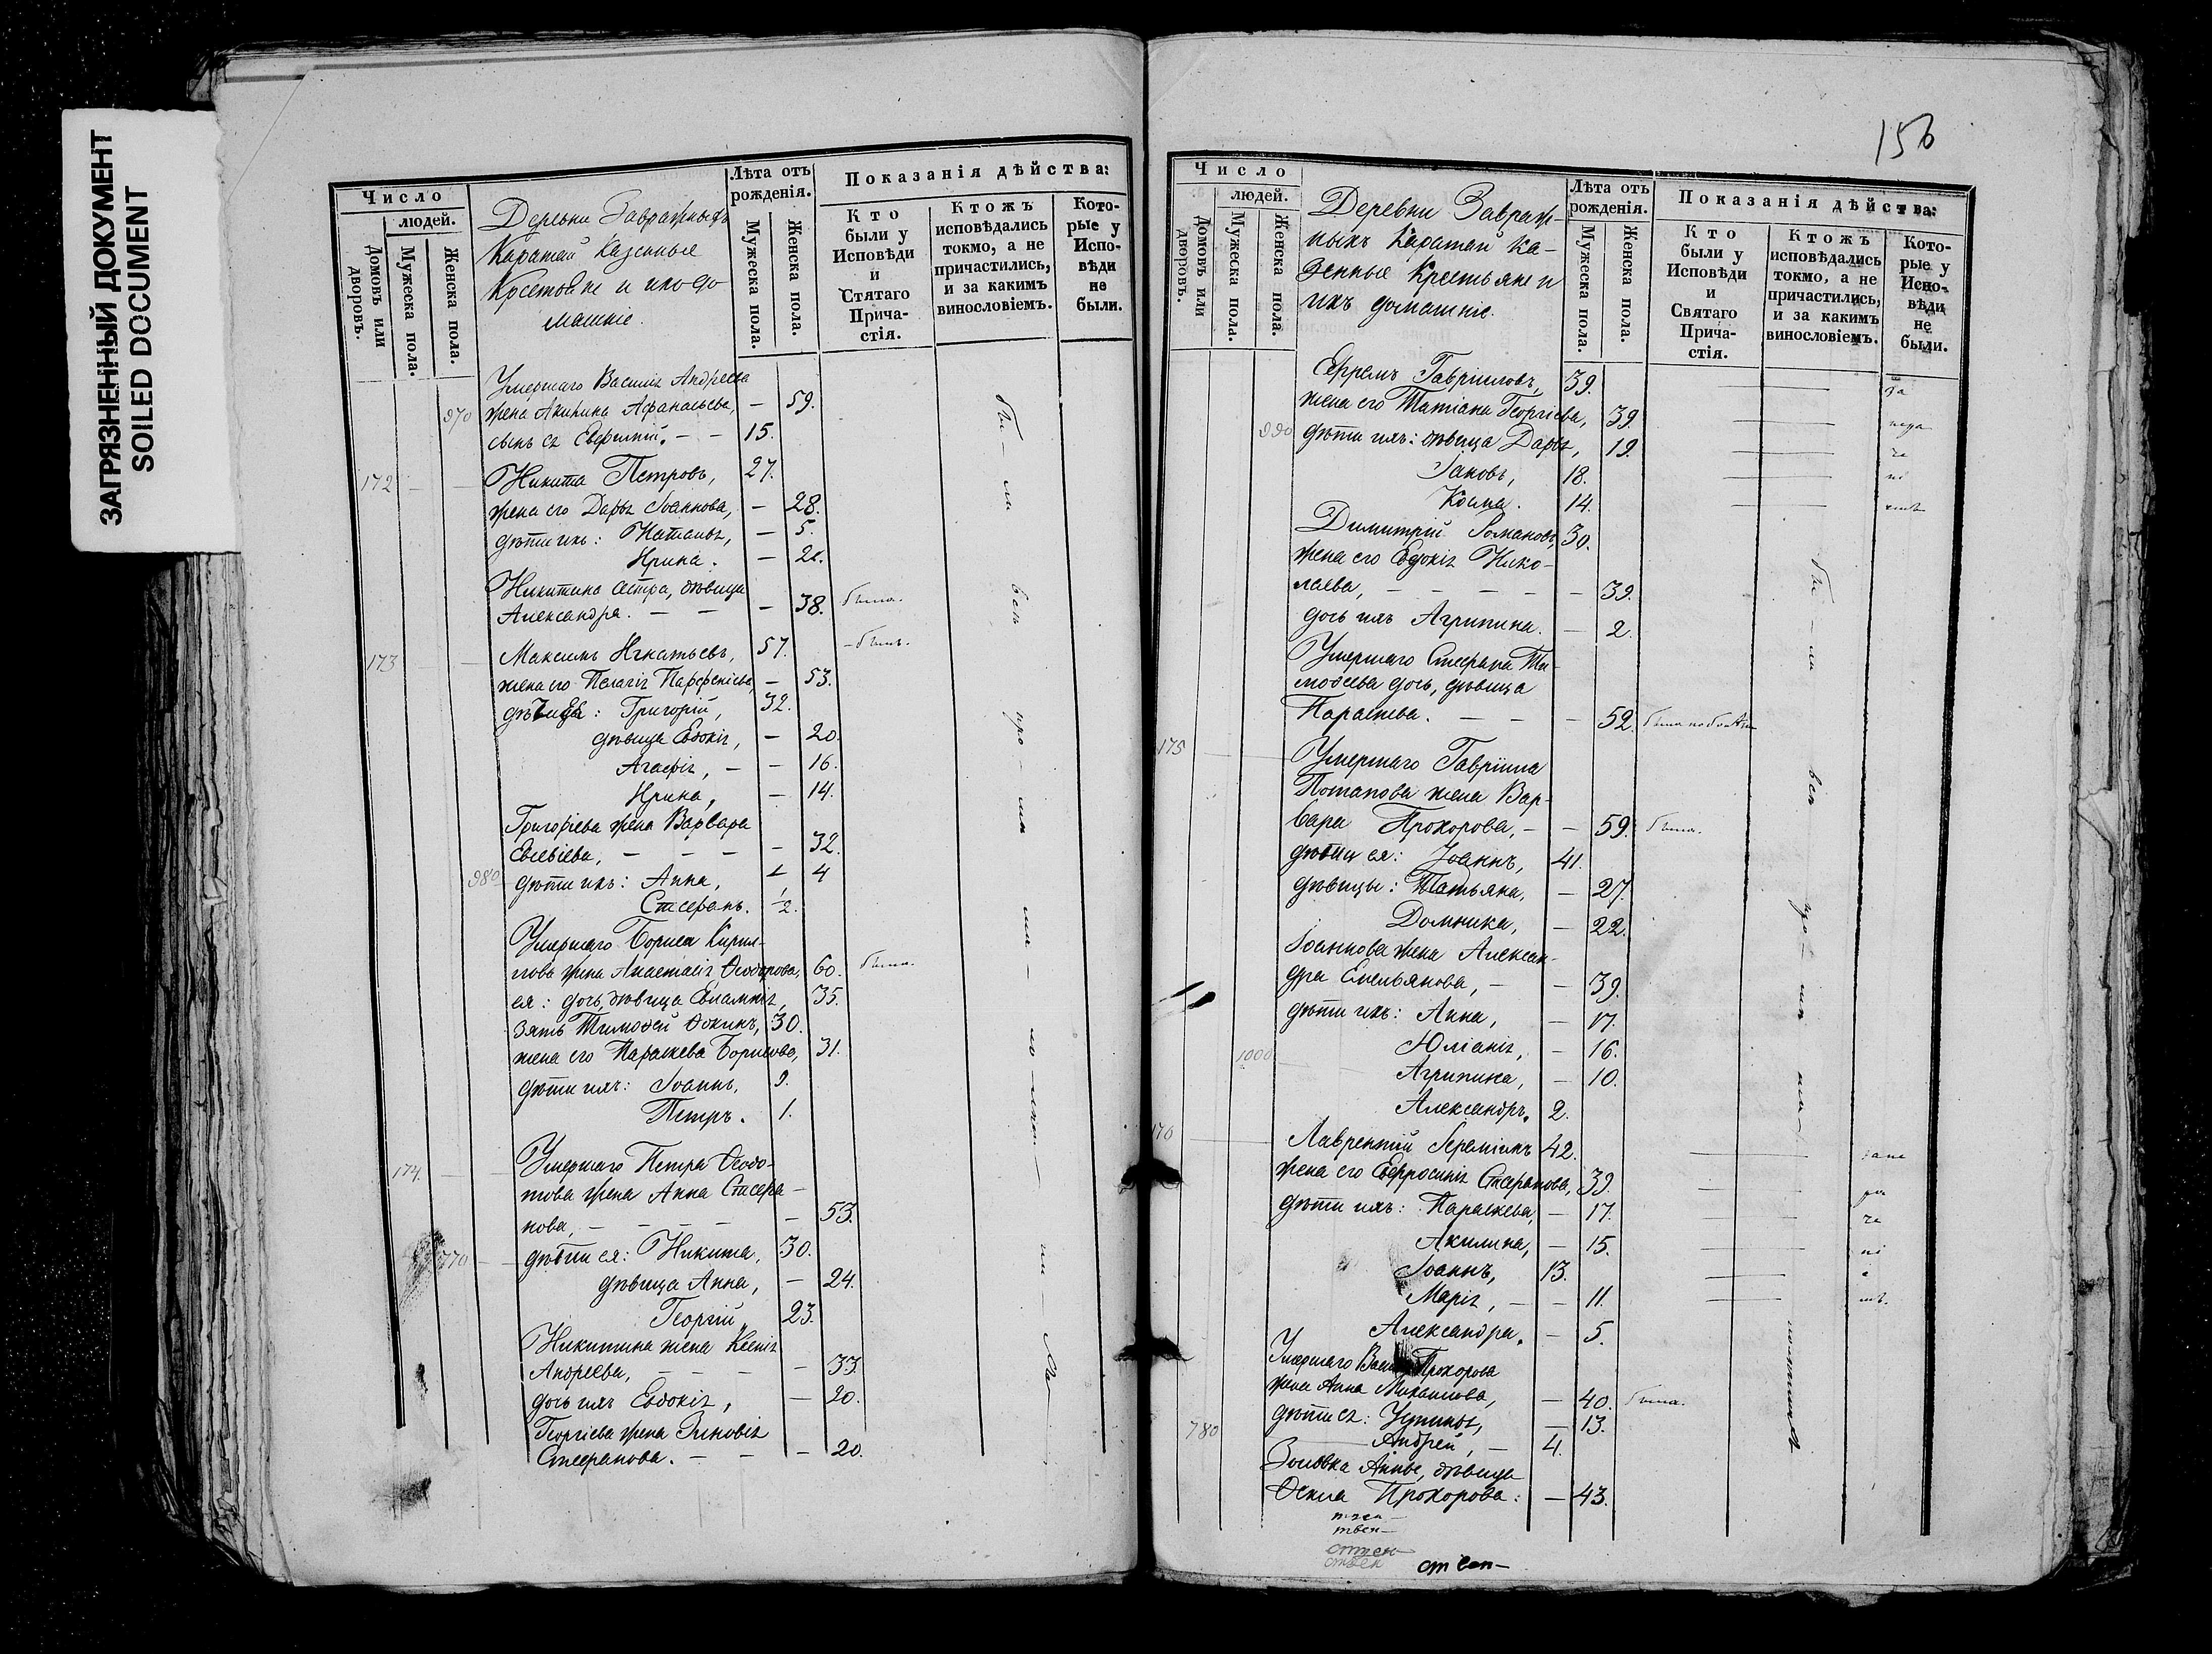 ЗАГРЯЗНЕННЫЙ ДОКУМЕНТ
SOILED DOCUMENT
Число
людей.
Домовъ или дворовъ.
Мужеска пола.
Женска пола.
Деревни Завражныхъ
Каратай Казенные
Крестьяне и ихъ до
машніе.
Лѣта отъ рожденія.
Мужеска пола.
Женска пола.
Показанія дѣйства:
Кто были у Исповѣди и Стятаго Прича-стія.
Ктожъ исповѣдались токмо, а не причастились, и за какимъ винословіемъ.
Кото-рые у Испо-вѣди не были.
Умершаго Василія Андреева
970 жена Акилина Афанасьева, — 59.
сынъ ея Евфимій. — — 15.
172 Никита Петровъ, 27.
жена его Дарья Іоаннова, — 28.
дѣти ихъ: Наталья, — 5.
Ирина. — 2.
Никитина сестра, дѣвица
Александра. — — — 38. была.
173 Максимъ Игнатьевъ, 57. — былъ.
жена его Пелагія Парфеніева, — 53.
Григорій, 32.
дѣвица Евдокія, — 20.
Агафія, — — 16.
Ирина, — 14.
Григоріева жена Варвара
Евсевіева, — — — — 32.
980 дѣти ихъ: Анна, — 4
Стефанъ. 1/2.
Умершаго Бориса Кирил-
лова жена Анастасія Ѳеодорова, 60. была.
ея: дочь, дѣвица Евлампія, 35.
зять Тимоѳей 30.
жена его Параскева Борисова, 31.
дѣти ихъ: Іоаннъ, 9.
Петръ. 1.
174. Умершаго Петра Ѳедо-
това жена Анна Стефа-
нова, — — — — — 53.
770 дѣти ея: Никита, 30.
дѣвица Анна, — 24.
Георгій, 23.
Никитина жена Ксенія
Андреева, — — — 33.
дочь ихъ Евдокія, — 20.
Георгіева жена Зиновія
Стефанова. — — — 20.
156
Число
людей.
Домовъ или дворовъ.
Мужеска пола.
Женска пола.
Деревни Завраж-
ныхъ Каратай Ка-
зенные Крестьяне и
ихъ домашніе.
Лѣта отъ рожденія.
Мужеска пола.
Женска пола.
Показанія дѣйства:
Кто были у Исповѣди и Святаго Прича-стія.
Ктожъ исповѣдались токмо, а не причастились, и за какимъ винословіемъ.
Кото-рые у Испо-вѣди не были.
Ефремъ Гавріиловъ, 39.
жена его Татіана Георгіева, 39.
990 дѣти ихъ: дѣвица Дарья, 19.
Іаковъ, 18.
Косма. 14.
Димитрій Романовъ, 30.
жена его Евдокія Нико-
лаева, — — — — — — 39.
дочь ихъ Агрипина. — 2.
Умершаго Стефана Ти-
моѳеева дочь, дѣвица
Параскева. — — — 52.
175 Умершаго Гавріила
Потапова жена Вар-
вара Прохорова, — — 59. была.
дѣти ея: Іоаннъ, 41.
дѣвицы: Татьяна, — 27.
Домника, — 22.
Іоаннова жена Алексан-
дра Емельянова, — — 39.
дѣти ихъ: Анна, — 17.
Юліанія, — 16.
1000 Агрипина, — 10.
Александръ. 2.
176 Лаврентій 42.
жена его Евфросинія Стефанова, 39.
дѣти ихъ: Параскева, — 17.
Акилина, — 15.
Іоаннъ, 13.
Марія, — — 11.
Александра. — 5.
Умершаго Прохорова
жена Анна Михаилова, — 40. была.
780 дѣти ея: Устинья, — 13.
Андрей, — 4.
Золовка Анны, дѣвица
Прохорова: — 43.